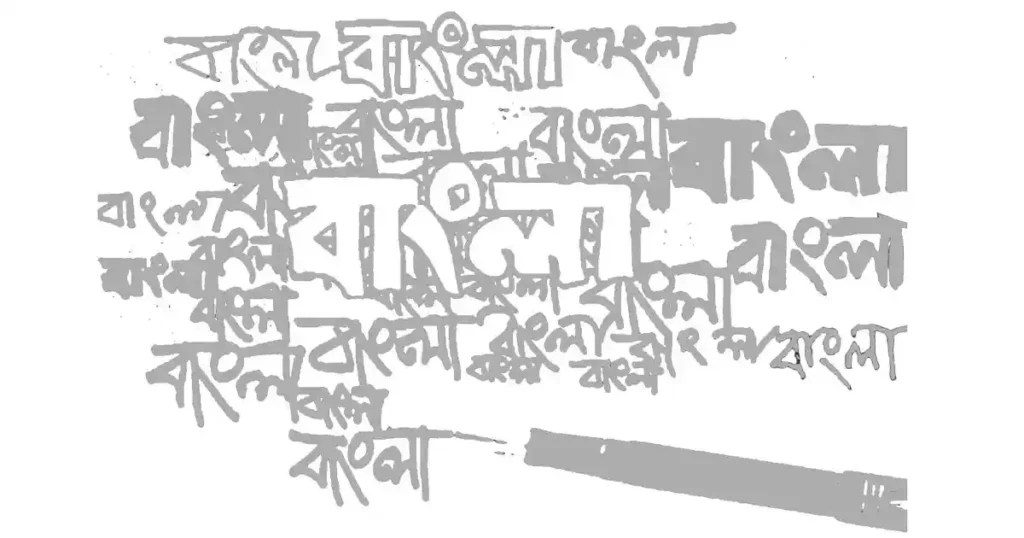 বাংলা বাংলা বাংলা
বাংলা বাংলা বাংলা বাংলা
বাংলা
বাংলা
বাংলা
বাংলা বাংলা
বাংলা বাংলা
বাংলা বাংলা বাংলা
বাংলা বাংলা বাংলা বাংলা বাংলা
বাংলা বাংলা বাংলা
বাংলা
বাংলা